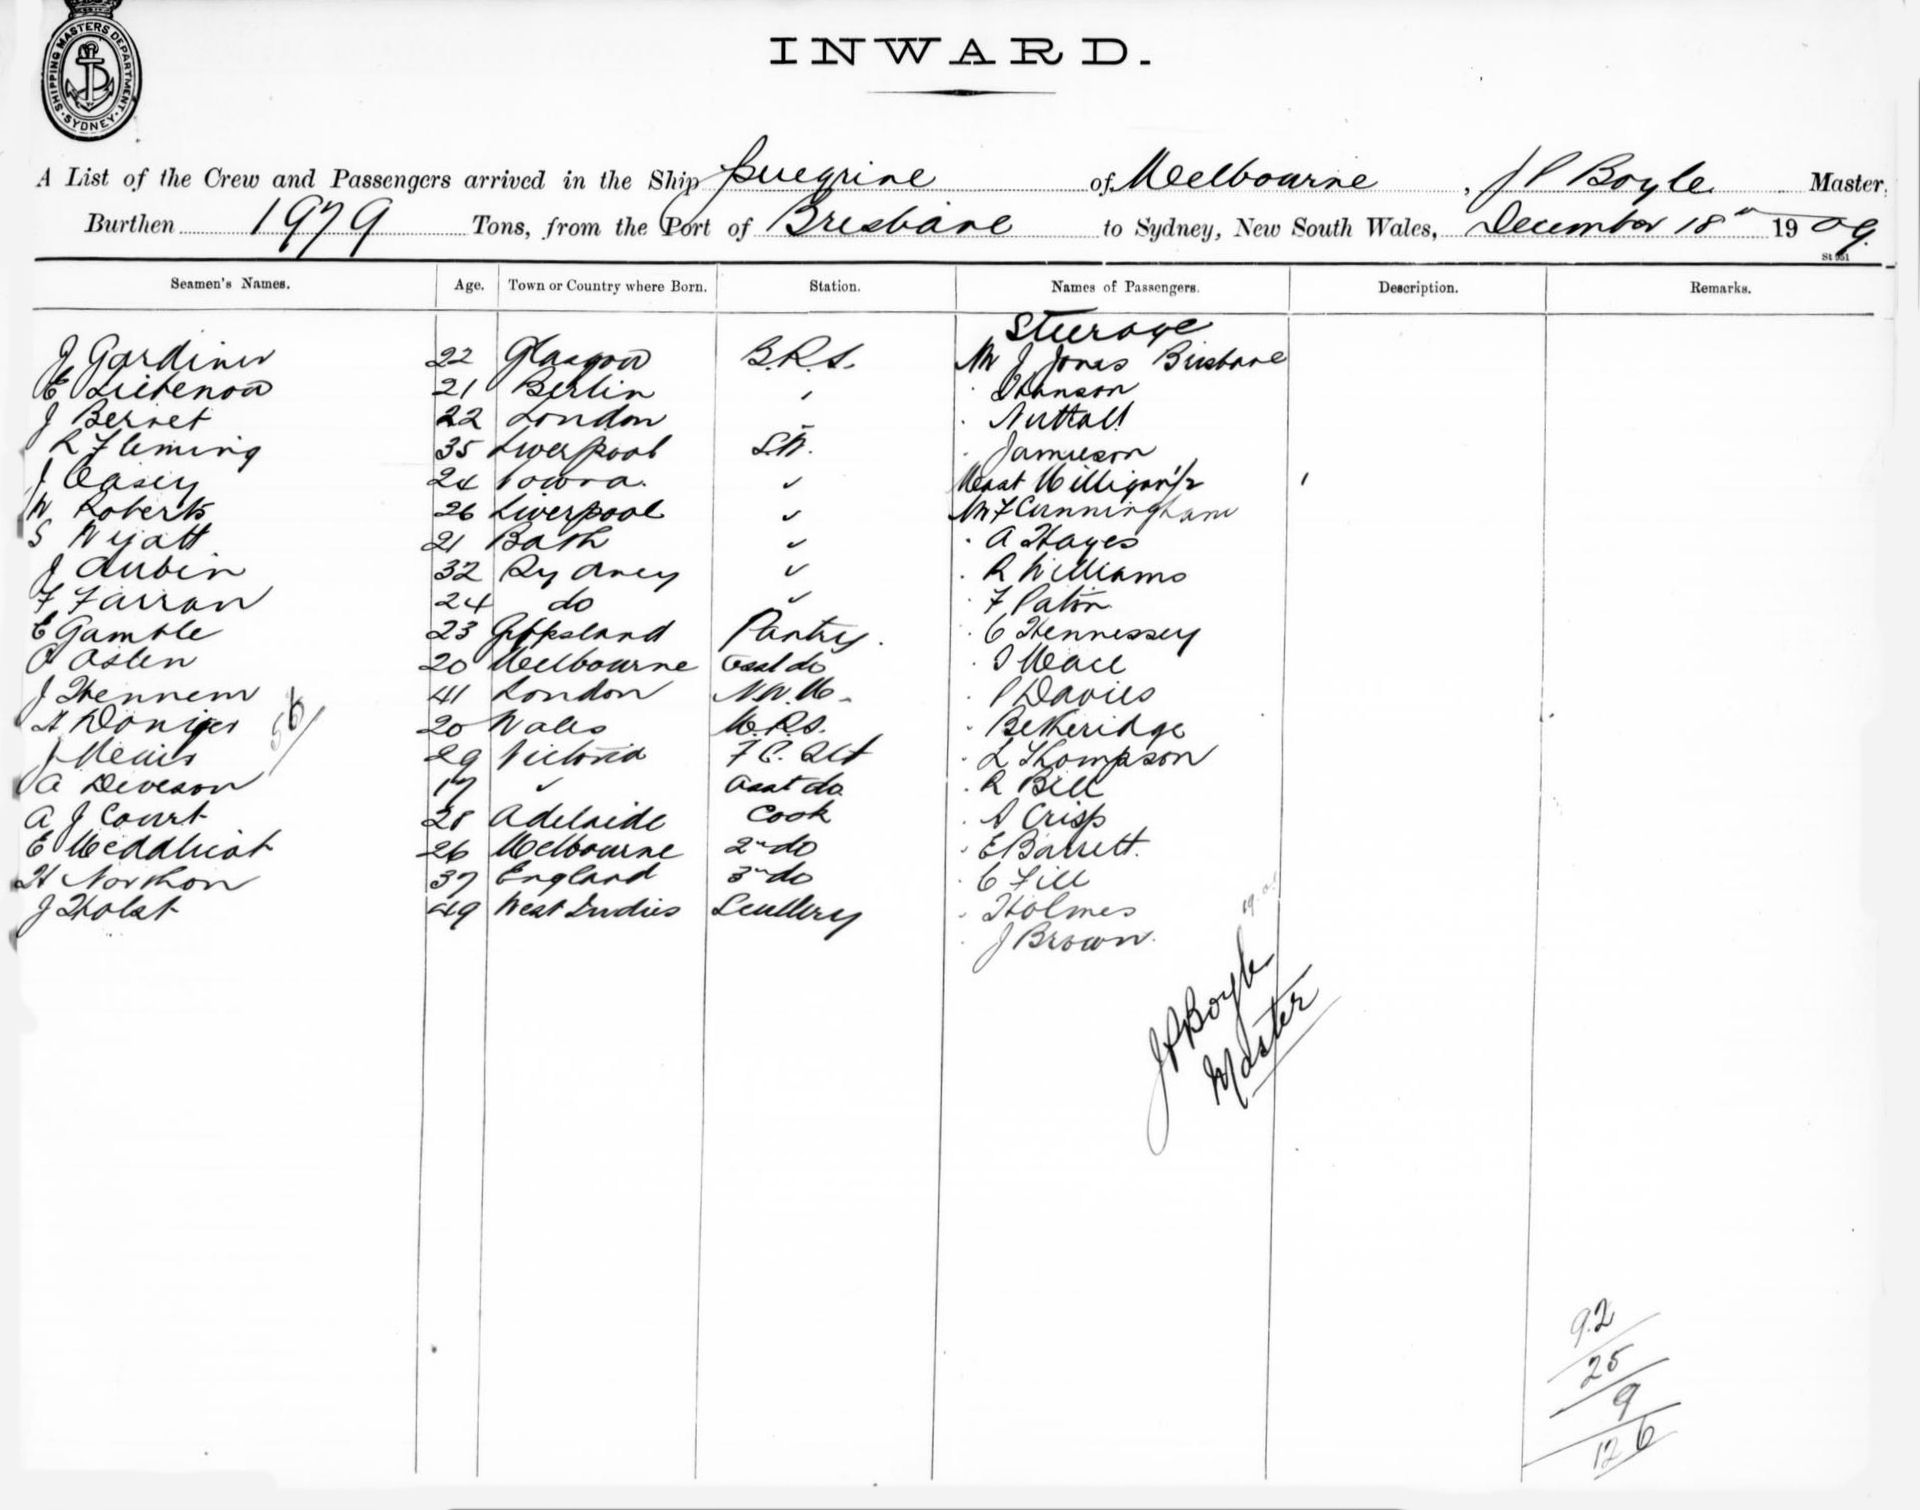 SHIPPING MASTERS DEPARTMENT · SYDNEY ·
INWARD.
A List of the Crew and Passengers arrived in the Ship Peregrine of Melbourne, J P Boyle Master,
Burthen 1979 Tons, from the Port of Brisbane to Sydney, New South Wales, December 18th 1909.
St 951
Seamen's Names. Age. Town or Country where Born. Station. Names of Passengers. Description. Remarks.
Steerage
J Gardiner 22 Glasgow B.R.S. Mr J Jones Brisbane
E 21 Berlin " Johnson
J Bernet 22 London " Nuttall
R Fleming 35 Liverpool S.W. " Jamieson
J Casey 24 Mast Milligan 1/2
W Roberts 26 Liverpool " Mr F Cunningham
S Wyatt 21 Bath " · A Hayes
J Aubin 32 Sydney " · R Williams
F Farran 24 do " · F Paton
E Gamble 23 Gippsland Pantry. · C Hennessey
20 Melbourne Asst do · Mace
J 41 London · P Davies
20 Wales M.R.S. · Betheridge
J 29 Victoria · L Thompson
A Deveson 17 " Asst do · R Bill
A J Court 28 Adelaide Cook · A Crisp
E 26 Melbourne 2nd do · E Barrett.
H Northon 37 England 3rd do · C Fill
J Holst 49 West Indies Scullery · Holmes
· J Brown.
56
J P Boyle
Master
92
25
9
126